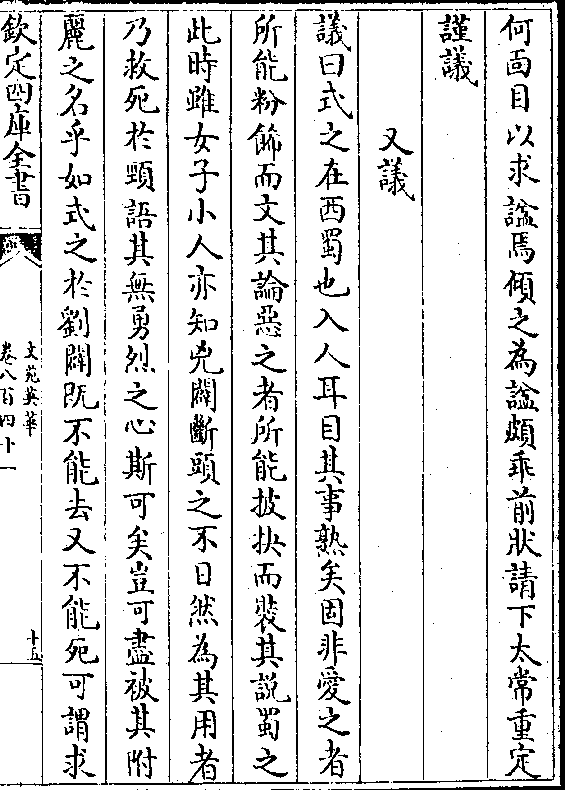 何面目以求諡焉傾之為諡頗乖前狀請下太常重定
謹議
又議
議曰式之在西蜀也入人耳目其事熟矣固非愛之者
所能粉飾而文其論惡之者所能披抉而裝其說蜀之
此時雖女子小人亦知兇闢斷頭之不日然為其用者
乃救死於頸語其無勇烈之心斯可矣豈可盡被其附
麗之名乎如式之於劉闢既不能去又不能死可謂求
欽定四庫全書
文苑英華
卷八百四十一
十五